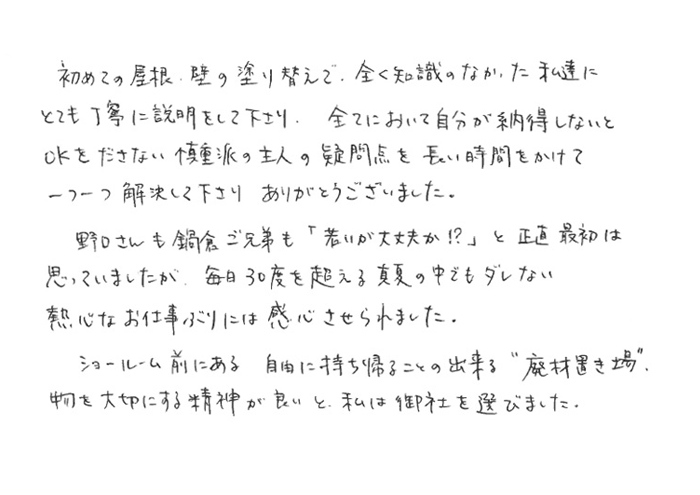 初めての屋根、壁の塗り替えで、全く知識のなかった私達に
とても丁寧に説明をして下さり、全てにおいて自分が納得しないと
OKをださない慎重派の主人の疑問点を長い時間をかけて
一つ一つ解決して下さりありがとうございました。
野口さんも鍋倉ご兄弟も「若いが大丈夫か!?」と正直最初は
思っていましたが、毎日30度を超える真夏の中でもダレない
熱心なお仕事ぶりには感心させられました。
ショールーム前にある 自由に持ち帰ることの出来る“廃材置き場”、
物を大切にする精神が良いと、私は御社を選びました。